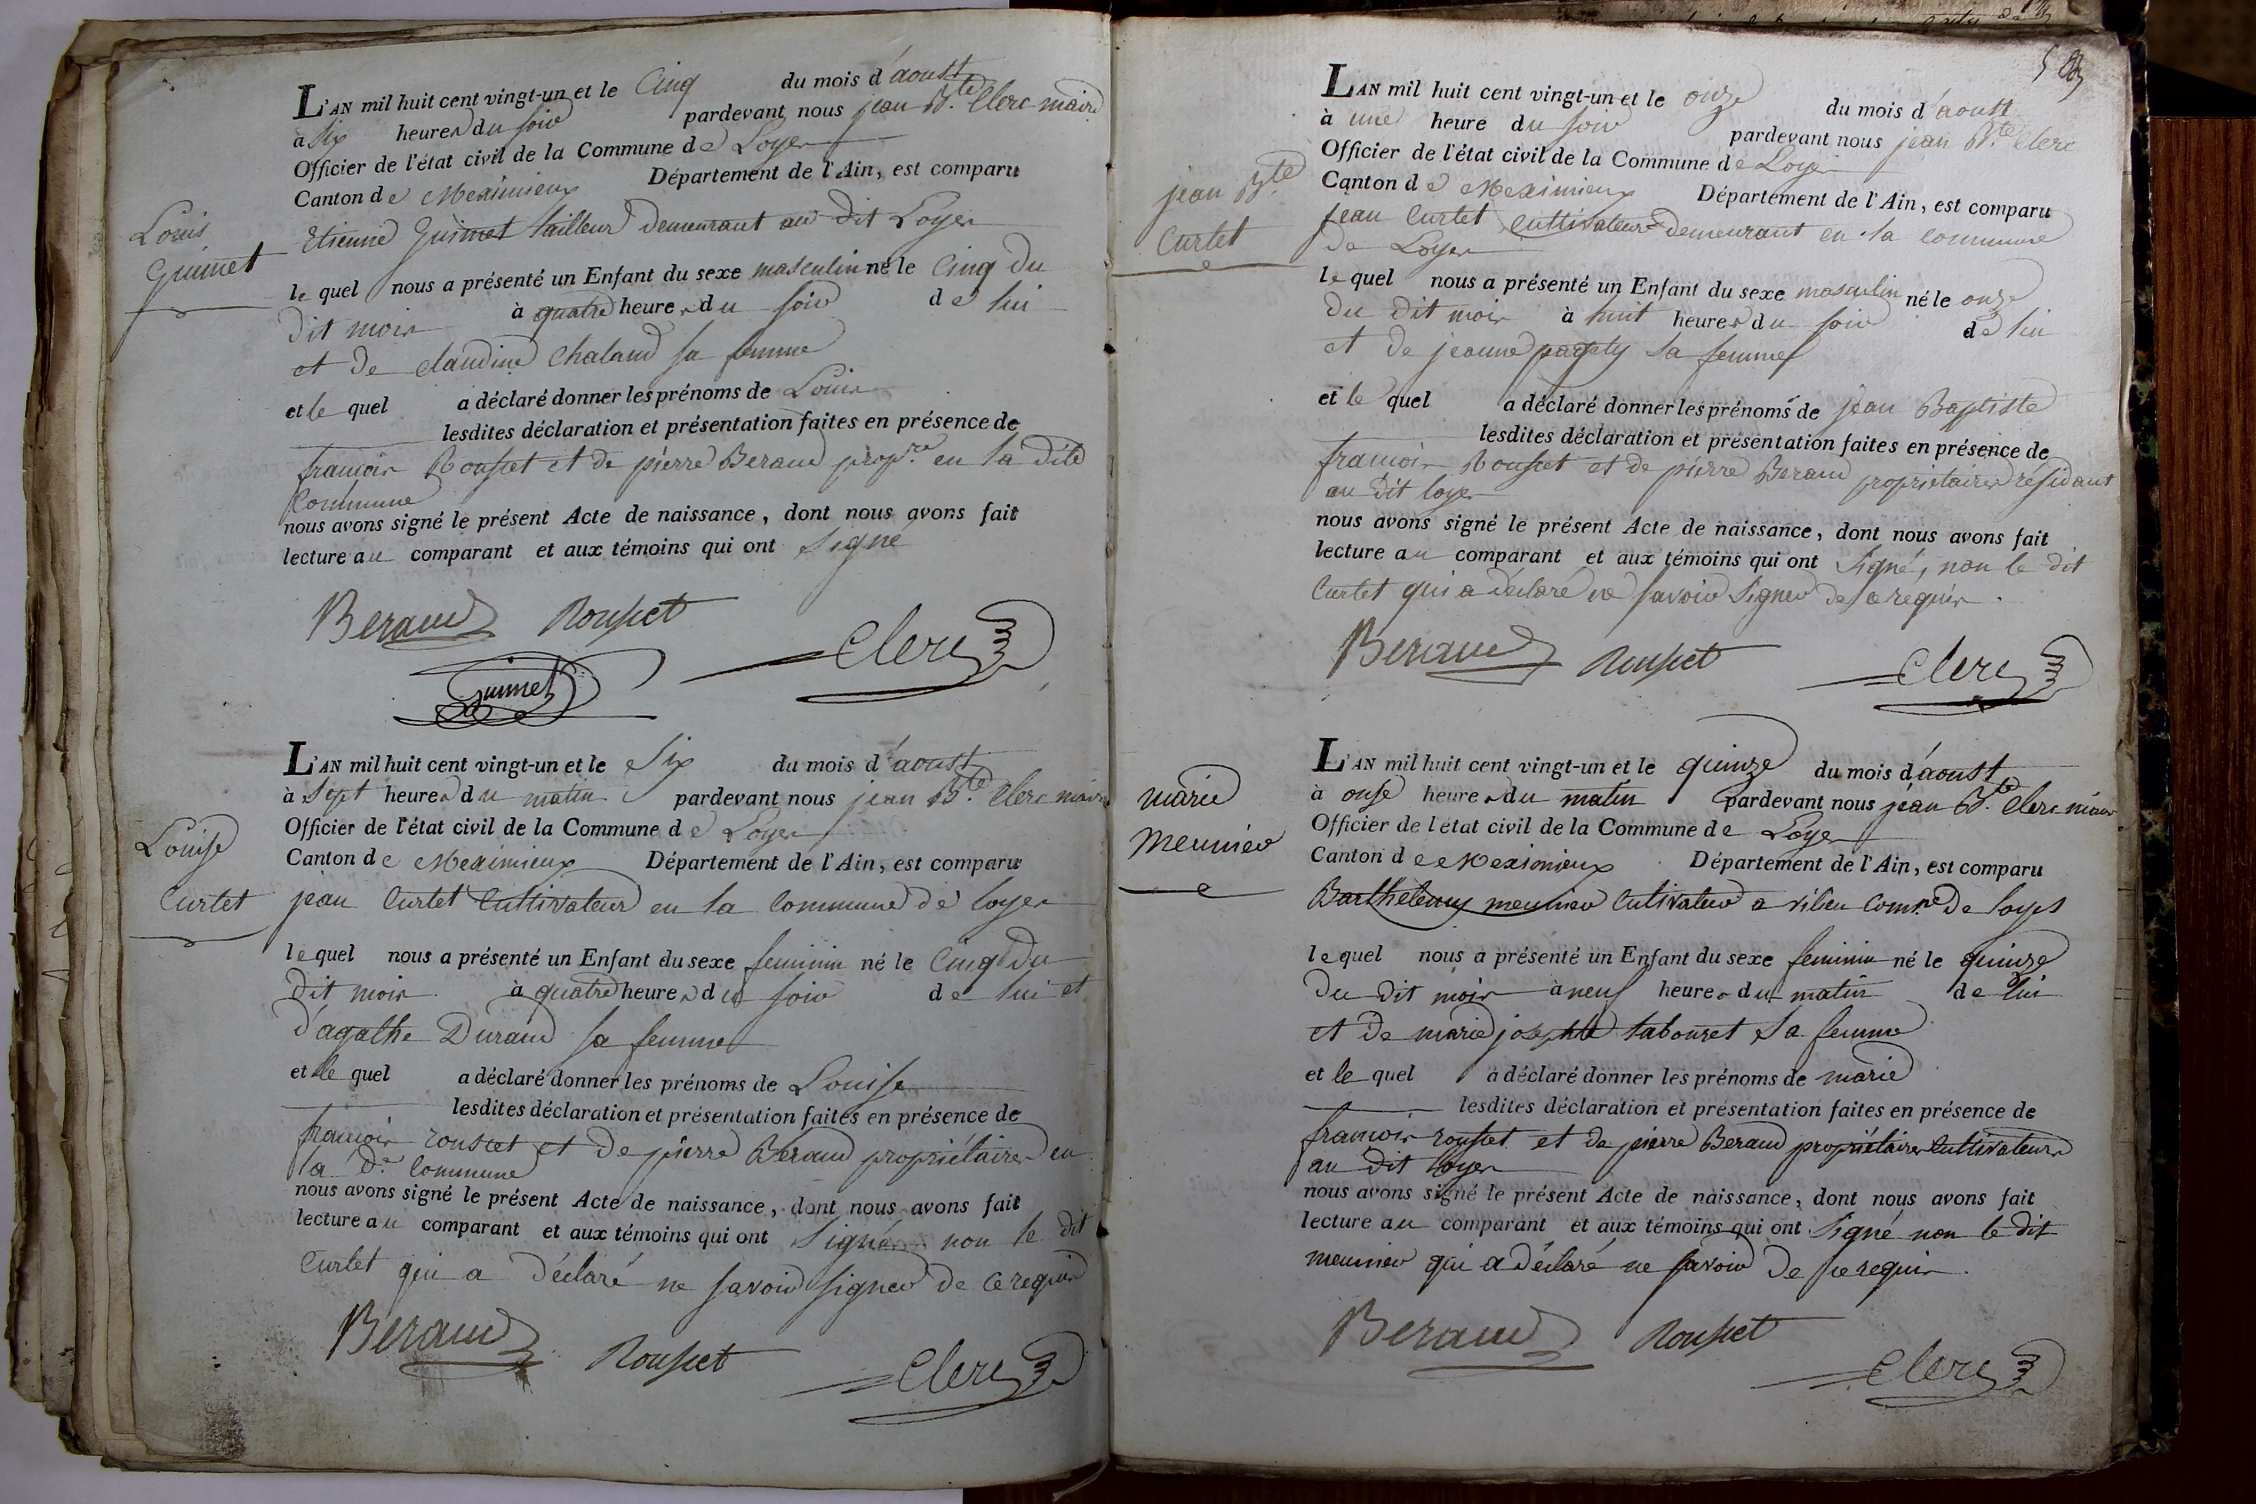 Louis
Guimet
L'AN mil huit cent vingt-un et le Cinq du mois d'aoust
à Six heures du soir pardevant nous jean B.te Clerc maire
Officier de l'état civil de la Commune de Loyes
Canton de Meximieux Département de l'Ain, est comparu
Etienne Guimet tailleur demeurant au dit Loyes
le quel nous a présenté un Enfant du sexe masculin né le Cinq du
dit mois à quatre heures du soir de lui
et de claudine Chaland sa femme
et le quel a déclaré donner les prénoms de Louis
lesdites déclaration et présentation faites en présence de
francois Rousset et de pierre Beraud prop.re en la dite
Commune
nous avons signé le présent Acte de naissance, dont nous avons fait
lecture au comparant et aux témoins qui ont Signé
Beraud Rousset
Clerc
Guimet
Louise
Curtet
L'AN mil huit cent vingt-un et le Six du mois d'aoust
à Sept heures du matin pardevant nous jean B.te Clerc maire
Officier de l'état civil de la Commune de Loyes
Canton de Meximieux Département de l'Ain, est comparu
jean Curtet Cultivateur en la Commune de loyes
le quel nous a présenté un Enfant du sexe feminin né le Cinq du
dit mois à quatre heures du soir de lui et
d'agathe Durand sa femme
et le quel a déclaré donner les prénoms de Louise
lesdites déclaration et présentation faites en présence de
francois rousset et de pierre Beraud propriétaires en
la d.e Commune
nous avons signé le présent Acte de naissance, dont nous avons fait
lecture au comparant et aux témoins qui ont Signé non le dit
Curtet qui a déclaré ne savoir signer de ce requis
Beraud Rousset
Clerc
jean B.te
Curtet
L'AN mil huit cent vingt-un et le onze du mois d'aoust
à une heure du soir pardevant nous jean B.te Clerc
Officier de l'état civil de la Commune de Loyes
Canton de Meximieux Département de l'Ain, est comparu
jean Curtet Cultivateur demeurant en la commune
de Loyes
le quel nous a présenté un Enfant du sexe masculin né le onze
du dit mois à huit heures du soir de lui
et de jeanne sa femme
et le quel a déclaré donner les prénoms de jean Baptiste
lesdites déclaration et présentation faites en présence de
francois Rousset et de pierre Beraud propriétaires résidant
au dit loyes
nous avons signé le présent Acte de naissance, dont nous avons fait
lecture au comparant et aux témoins qui ont Signé, non le dit
Curtet qui a déclaré ne savoir Signer de ce requis.
Beraud Rousset
Clerc
marie
meunier
L'AN mil huit cent vingt-un et le quinze du mois d'aoust
à onse heures du matin pardevant nous jean B.te Clerc maire
Officier de l'état civil de la Commune de Loyes
Canton de Meximieux Département de l'Ain, est comparu
Barthelemy meunier Cultivateur a rilieu Com.ne de loyes
le quel nous a présenté un Enfant du sexe feminin né le quinze
du dit mois à neuf heures du matin de lui
et de marie josephte tabouret sa femme
et le quel a déclaré donner les prénoms de marie
lesdites déclaration et présentation faites en présence de
francois rousset et de pierre Beraud propriétaires Cultivateurs
au dit loyes
nous avons signé le présent Acte de naissance, dont nous avons fait
lecture au comparant et aux témoins qui ont Signé non le dit
meunier qui a déclaré ne savoir de ce requis.
Beraud Rousset
Clerc